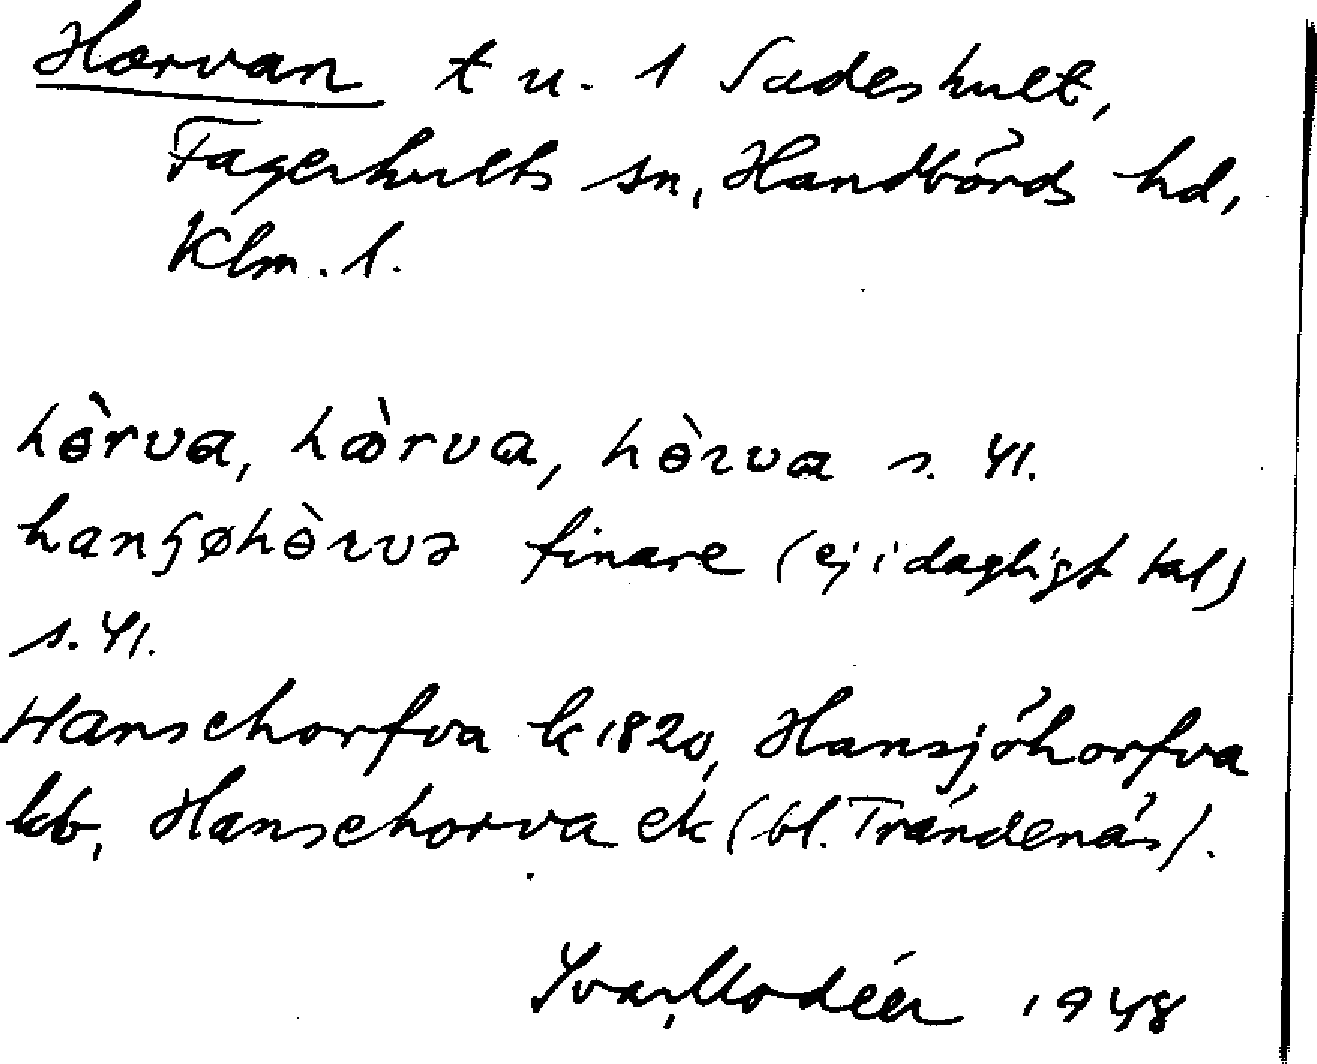 Horvan t u. 1 Sadeshult,
Fagerhults sn, Handbörds hd,
Klm. l.
hɵ̀rva, hꝏ̀rva, hɵ̀rva s. 41.
hanʃøhɵ̀rvə finare (ej i dagligt tal)
s. 41.
Hansehorfva lc 1820, Hansjöhorfva
kb, Hansehorva ek (bl. Tråndenäs).
Ivar Modéer 1948